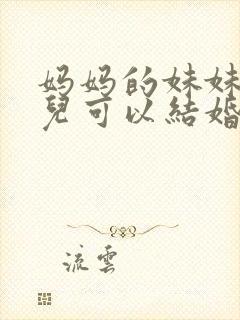 妈妈的妹妹
兒可以結婚
流雲